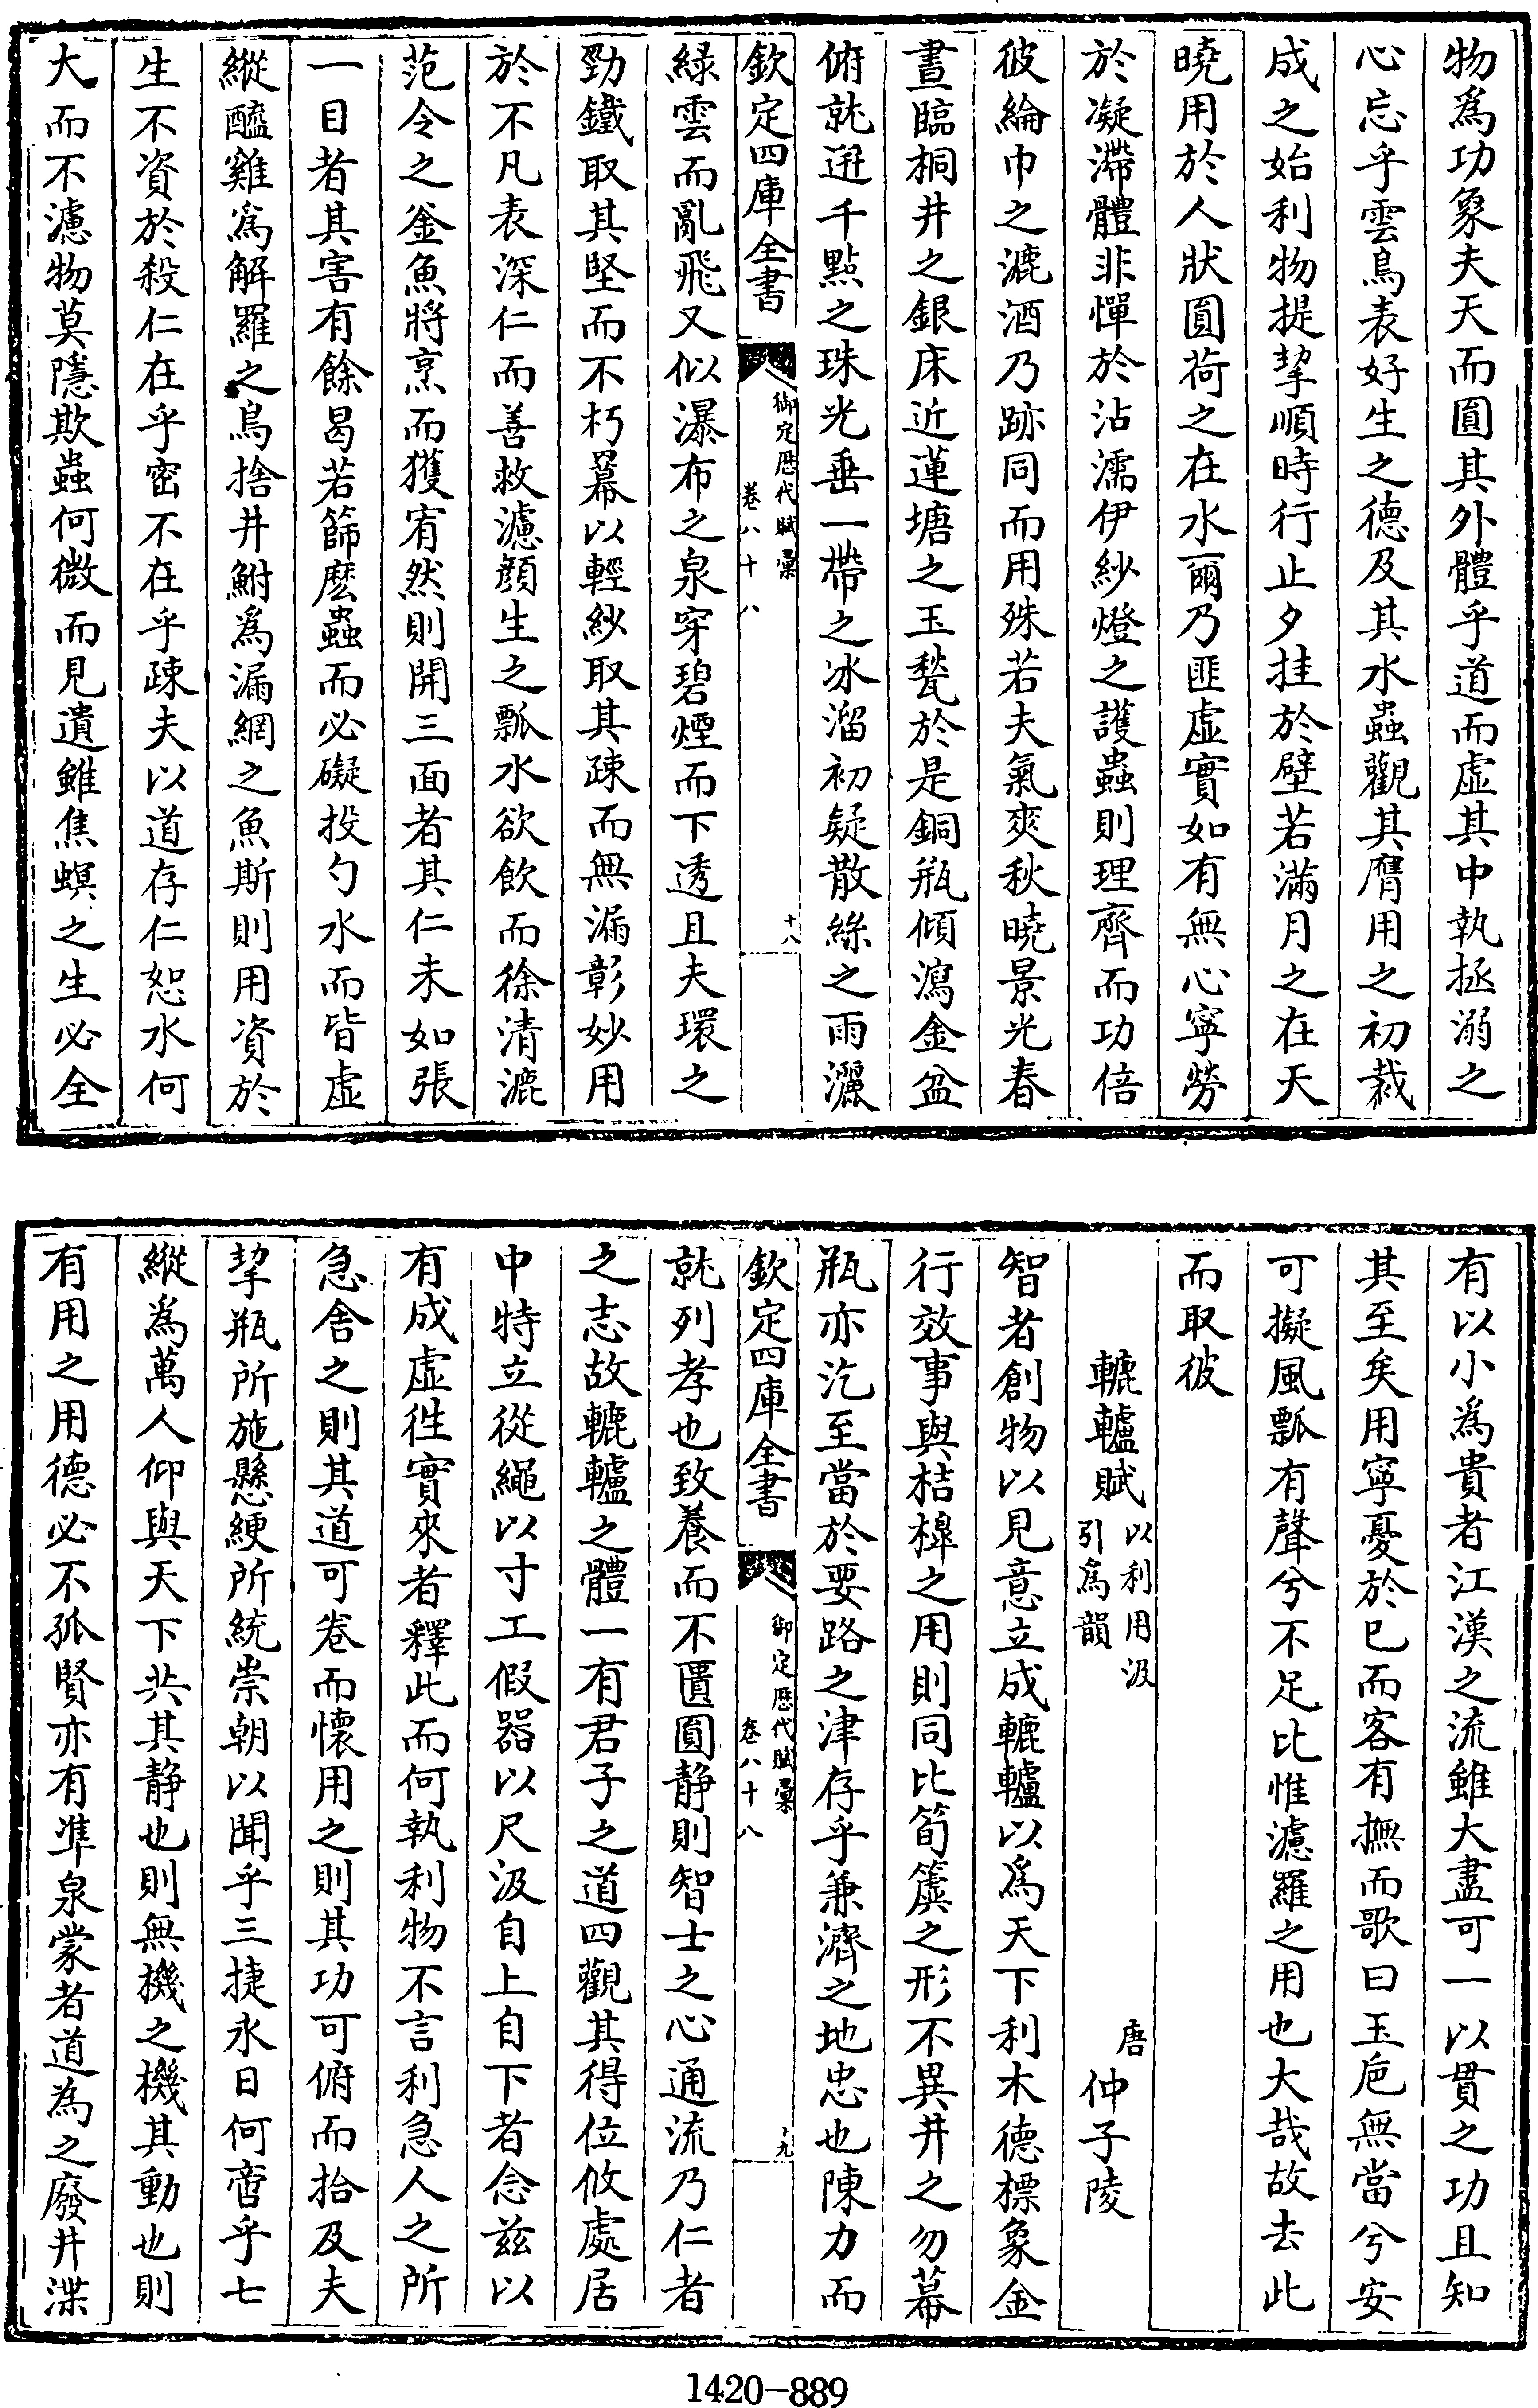 物爲功象夫天而圓其外體乎道而虛其中執拯溺之
心忘乎雲鳥表好生之德及其水蟲觀其膺用之初裁
成之始利物提挈順時行止夕挂於壁若滿月之在天
曉用於人狀圓荷之在水爾乃匪虛實如有無心寧勞
於凝滯體非憚於沾濡伊紗燈之護蟲則理齊而功倍
彼綸巾之漉酒乃跡同而用殊若夫氣爽秋曉景光春
晝臨桐井之銀床近蓮塘之玉甃於是銅瓶傾瀉金盆
俯就迸千點之珠光垂一帶之冰溜初疑散絲之雨灑
欽定四庫全書 御定歷代賦彙 卷八十八 十八
綠雲而亂飛又似瀑布之泉穿碧煙而下透且夫環之
勁鐵取其堅而不朽羃以輕紗取其疎而無漏彰妙用
於不凡表深仁而善救濾顏生之瓢水欲飲而徐清漉
范令之釜魚將烹而獲宥然則開三面者其仁未如張
一目者其害有餘曷若篩麼蟲而必礙投勺水而皆虛
縱醯雞爲解羅之鳥捨井鮒爲漏網之魚斯則用資於
生不資於殺仁在乎密不在乎疎夫以道存仁恕水何
大而不濾物莫隱欺蟲何微而見遺雖焦螟之生必全
有以小爲貴者江漢之流雖大盡可一以貫之功且知
其至矣用寧憂於已而客有撫而歌曰玉巵無當兮安
可擬風瓢有聲兮不足比惟濾羅之用也大哉故去此
而取彼
轆轤賦 以利用汲引爲韻 唐 仲子陵
智者創物以見意立成轆轤以爲天下利木德標象金
行效事與桔槹之用則同比筍簴之形不異井之勿幕
瓶亦汔至當於要路之津存乎兼濟之地忠也陳力而
欽定四庫全書 御定歷代賦彙 卷八十八 十九
就列孝也致養而不匱圓靜則智士之心通流乃仁者
之志故轆轤之體一有君子之道四觀其得位攸處居
中特立從繩以寸工假器以尺汲自上自下者念玆以
有成虛徃實來者釋此而何執利物不言利急人之所
急舍之則其道可卷而懷用之則其功可俯而拾及夫
挈瓶所施懸綆所統崇朝以聞乎三捷永日何啻乎七
縱爲萬人仰與天下共其靜也則無機之機其動也則
有用之用德必不孤賢亦有準泉蒙者道為之廢井渫
1420-889